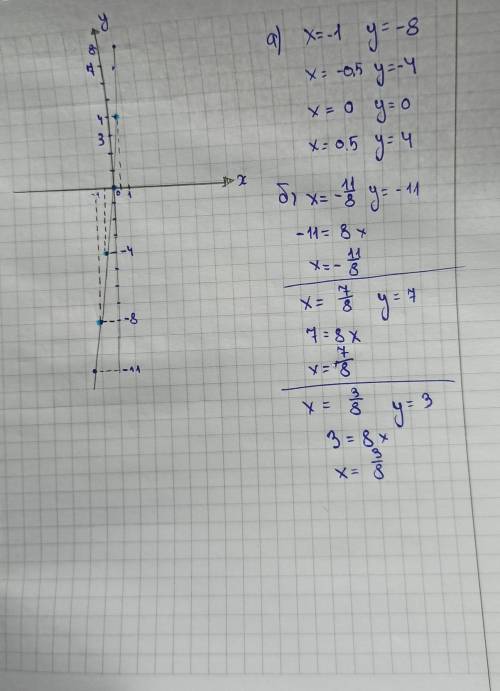 y
8
7
4
3
-1 0 1 x
-4
-8
-11
а) x=-1 y=-8
x=-0,5 y=-4
x=0 y=0
x=0,5 y=4
б) x=-11/8 y=-11
-11=8x
x=-11/8
x=7/8 y=7
7=8x
x=7/8
x=3/8 y=3
3=8x
x=3/8